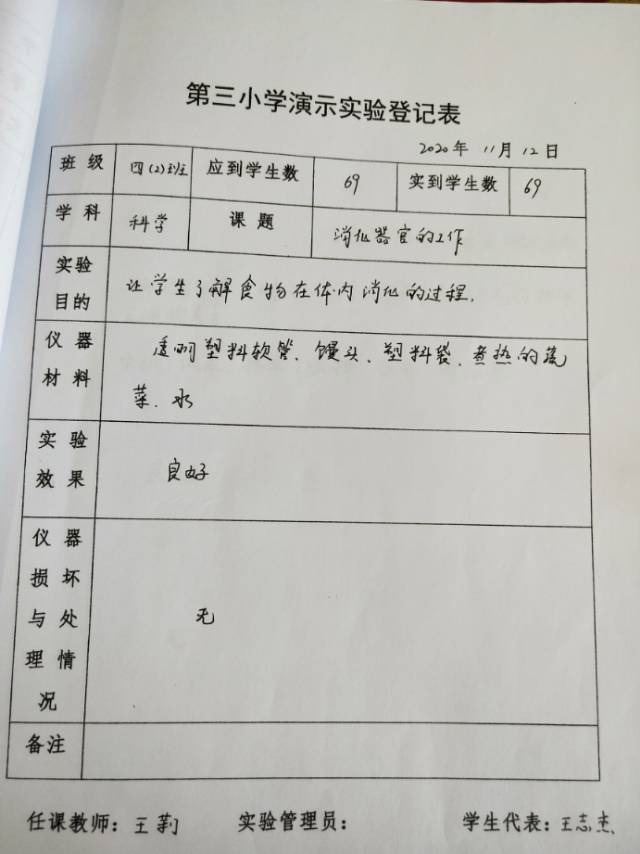 第三小学演示实验登记表
2020年 11月 12日
班级 四(2)班 应到学生数 69 实到学生数 69
学科 科学 课题 消化器官的工作
实验目的 让学生了解食物在体内消化的过程.
仪器材料 透明塑料软管、馒头、塑料袋、煮热的蔬
菜、水
实验效果 良好
仪器损坏与处理情况 无
备注
任课教师：王莉 实验管理员： 学生代表：王志杰